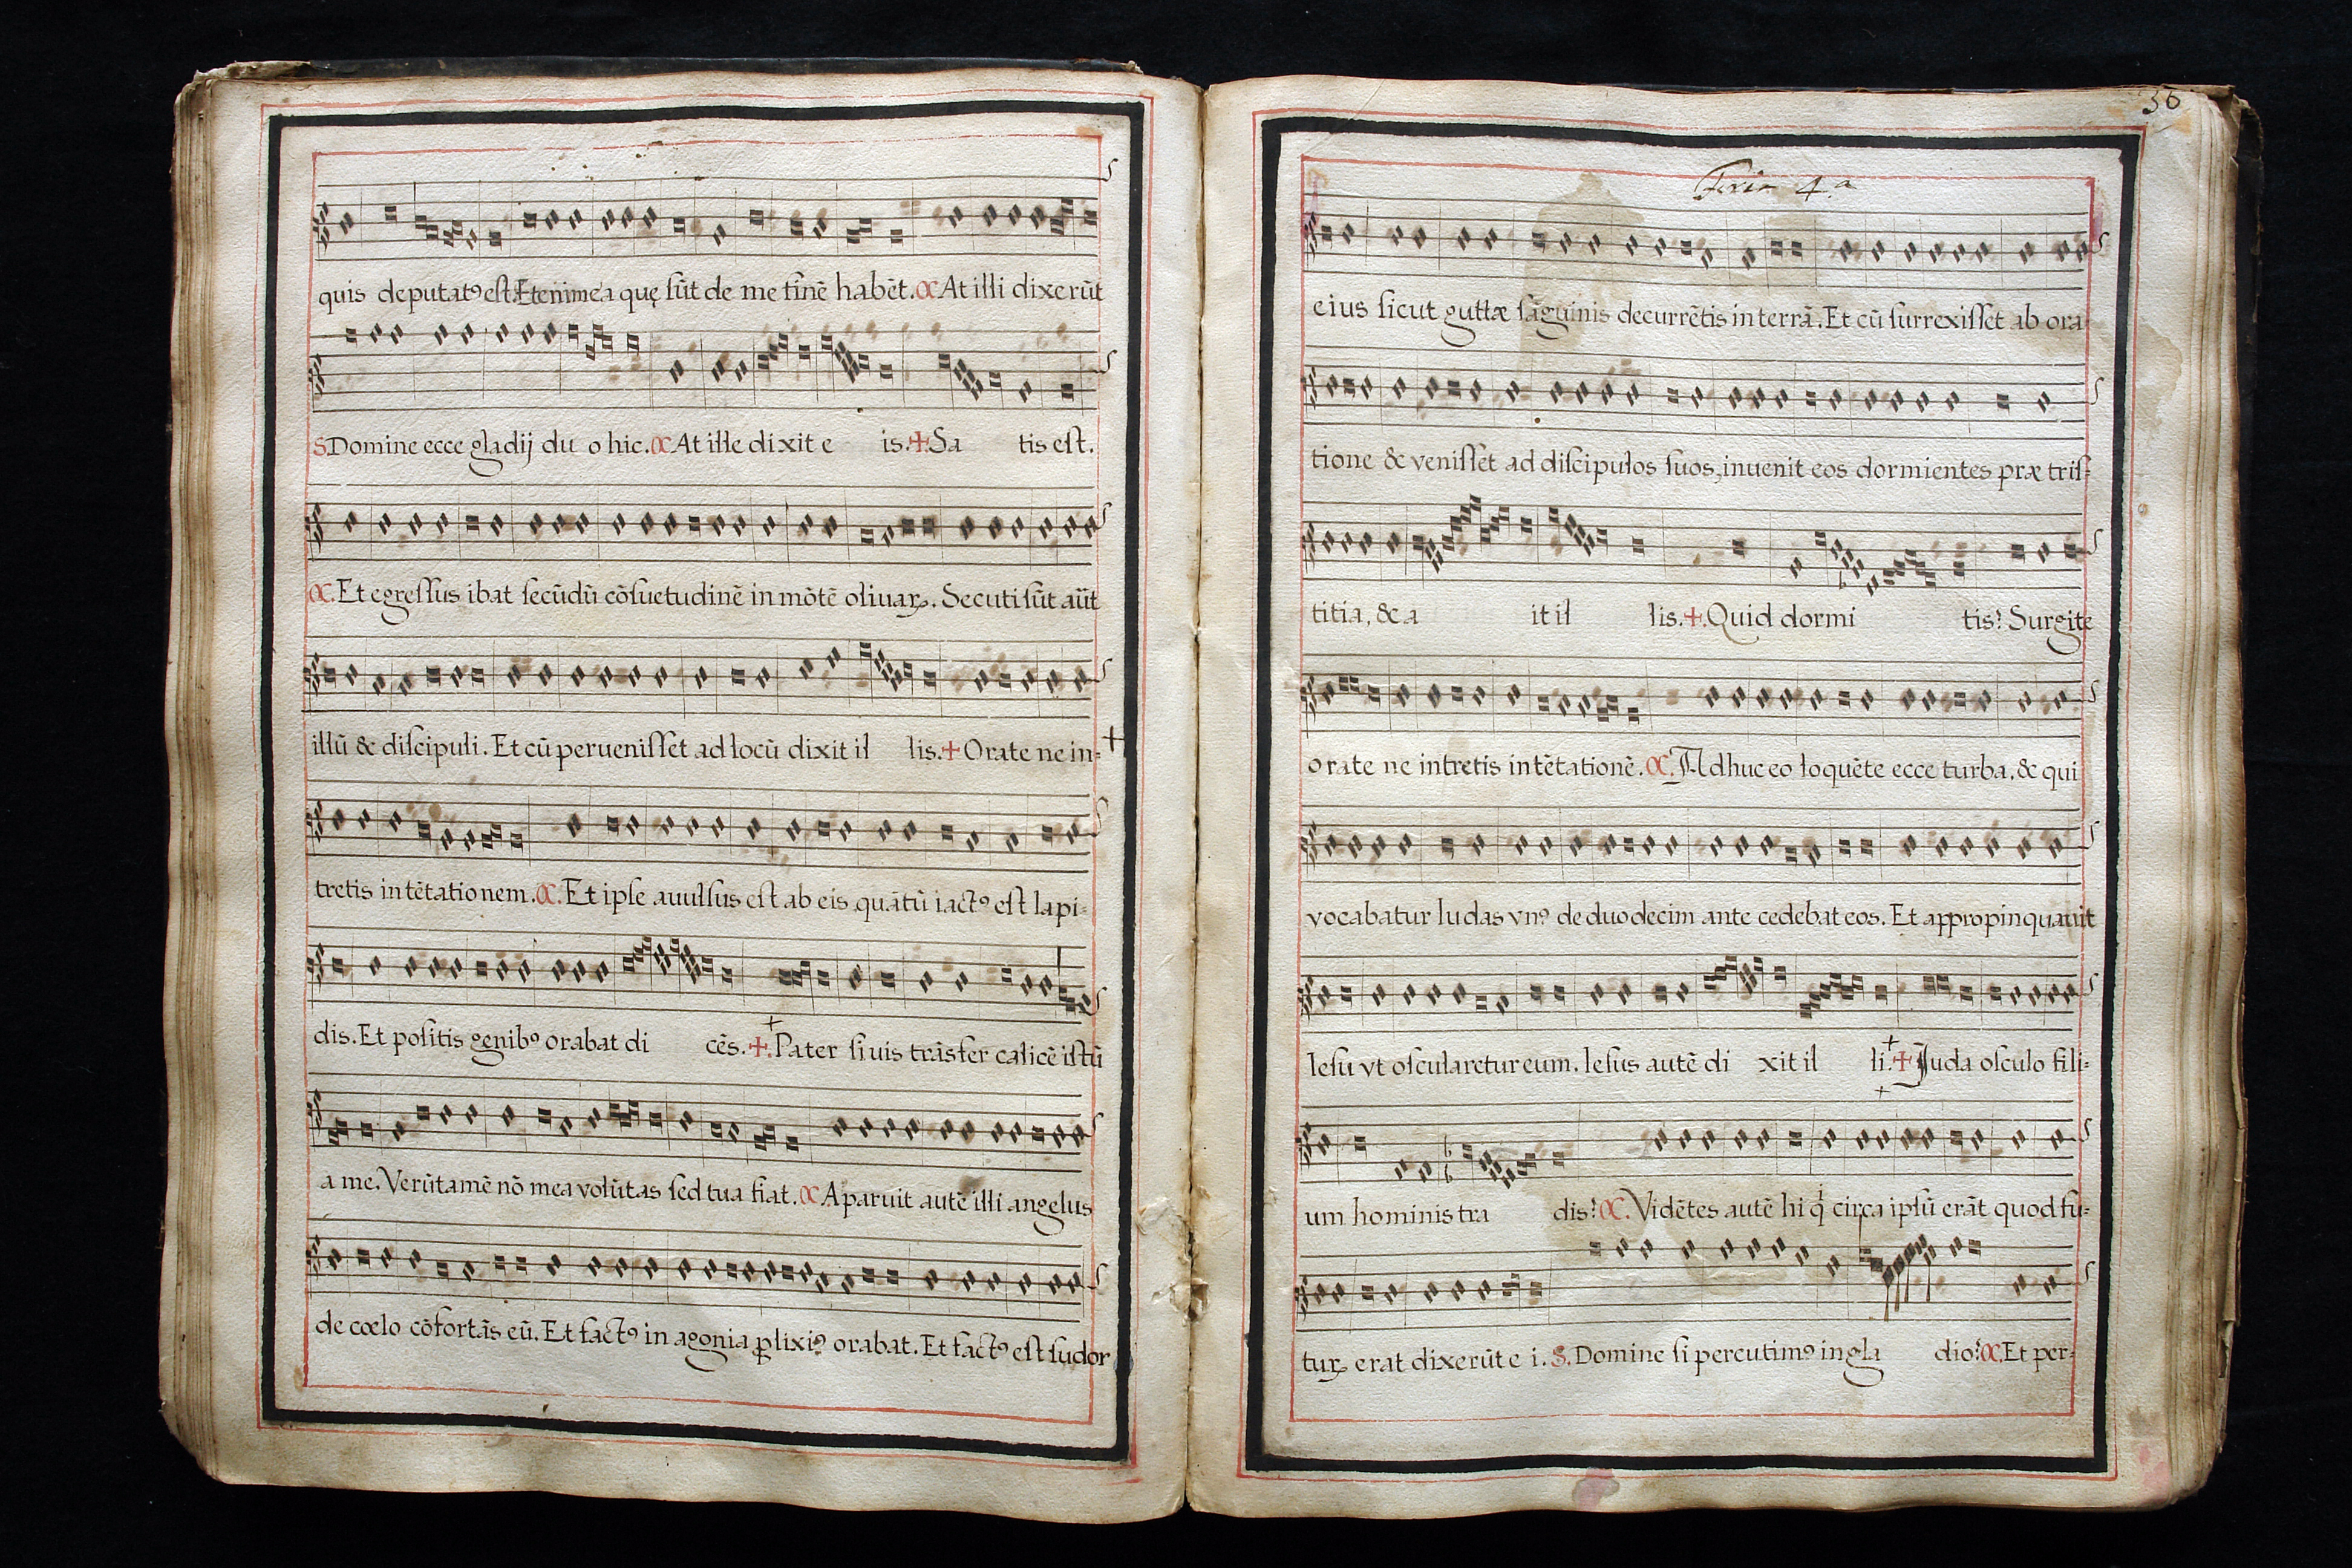 quis deputatꝰ est. Etenim ea quę sūt de me finē habēt. C At illi dixerūt
S Domine ecce gladij duo hic. C At ille dixit eis. + Satis est.
C. Et egressus ibat secūdū cōsuetudinē in mōtē oliuaꝝ. Secuti sūt aūt
illū & discipuli. Et cū peruenisset ad locū dixit illis. + Orate ne in-
+
tretis in tētationem. C. Et ipse auulsus est ab eis quātū iactꝰ est lapi-
dis. Et positis genibꝰ orabat dicēs. +. Pater si uis trāsfer calicē istū
a me. Verūtamē nō mea volūtas sed tua fiat. C Aparuit autē illi angelus
de cœlo cōfortās eū. Et factꝰ in agonia ꝓlixiꝰ orabat. Et factꝰ est sudor
36
Feria 4.a
eius sicut guttæ sāguinis decurrētis in terrā. Et cū surrexisset ab ora-
tione & venisset ad discipulos suos, inuenit eos dormientes præ tris-
titia, & ait illis. +. Quid dormitis? Surgite
orate ne intretis in tētationē. C. Adhuc eo loquēte ecce turba. & qui
vocabatur Iudas vnꝰ de duodecim antecedebat eos. Et appropinquauit
Iesu vt oscularetur eum. Iesus autē dixit illi. + Juda osculo fili-
um hominis tradis? C. Vidētes autē hi q̇ circa ipsū erāt quod fu-
turꝝ erat dixerūt ei. S. Domine si percutimꝰ in gladio? C. Et per-